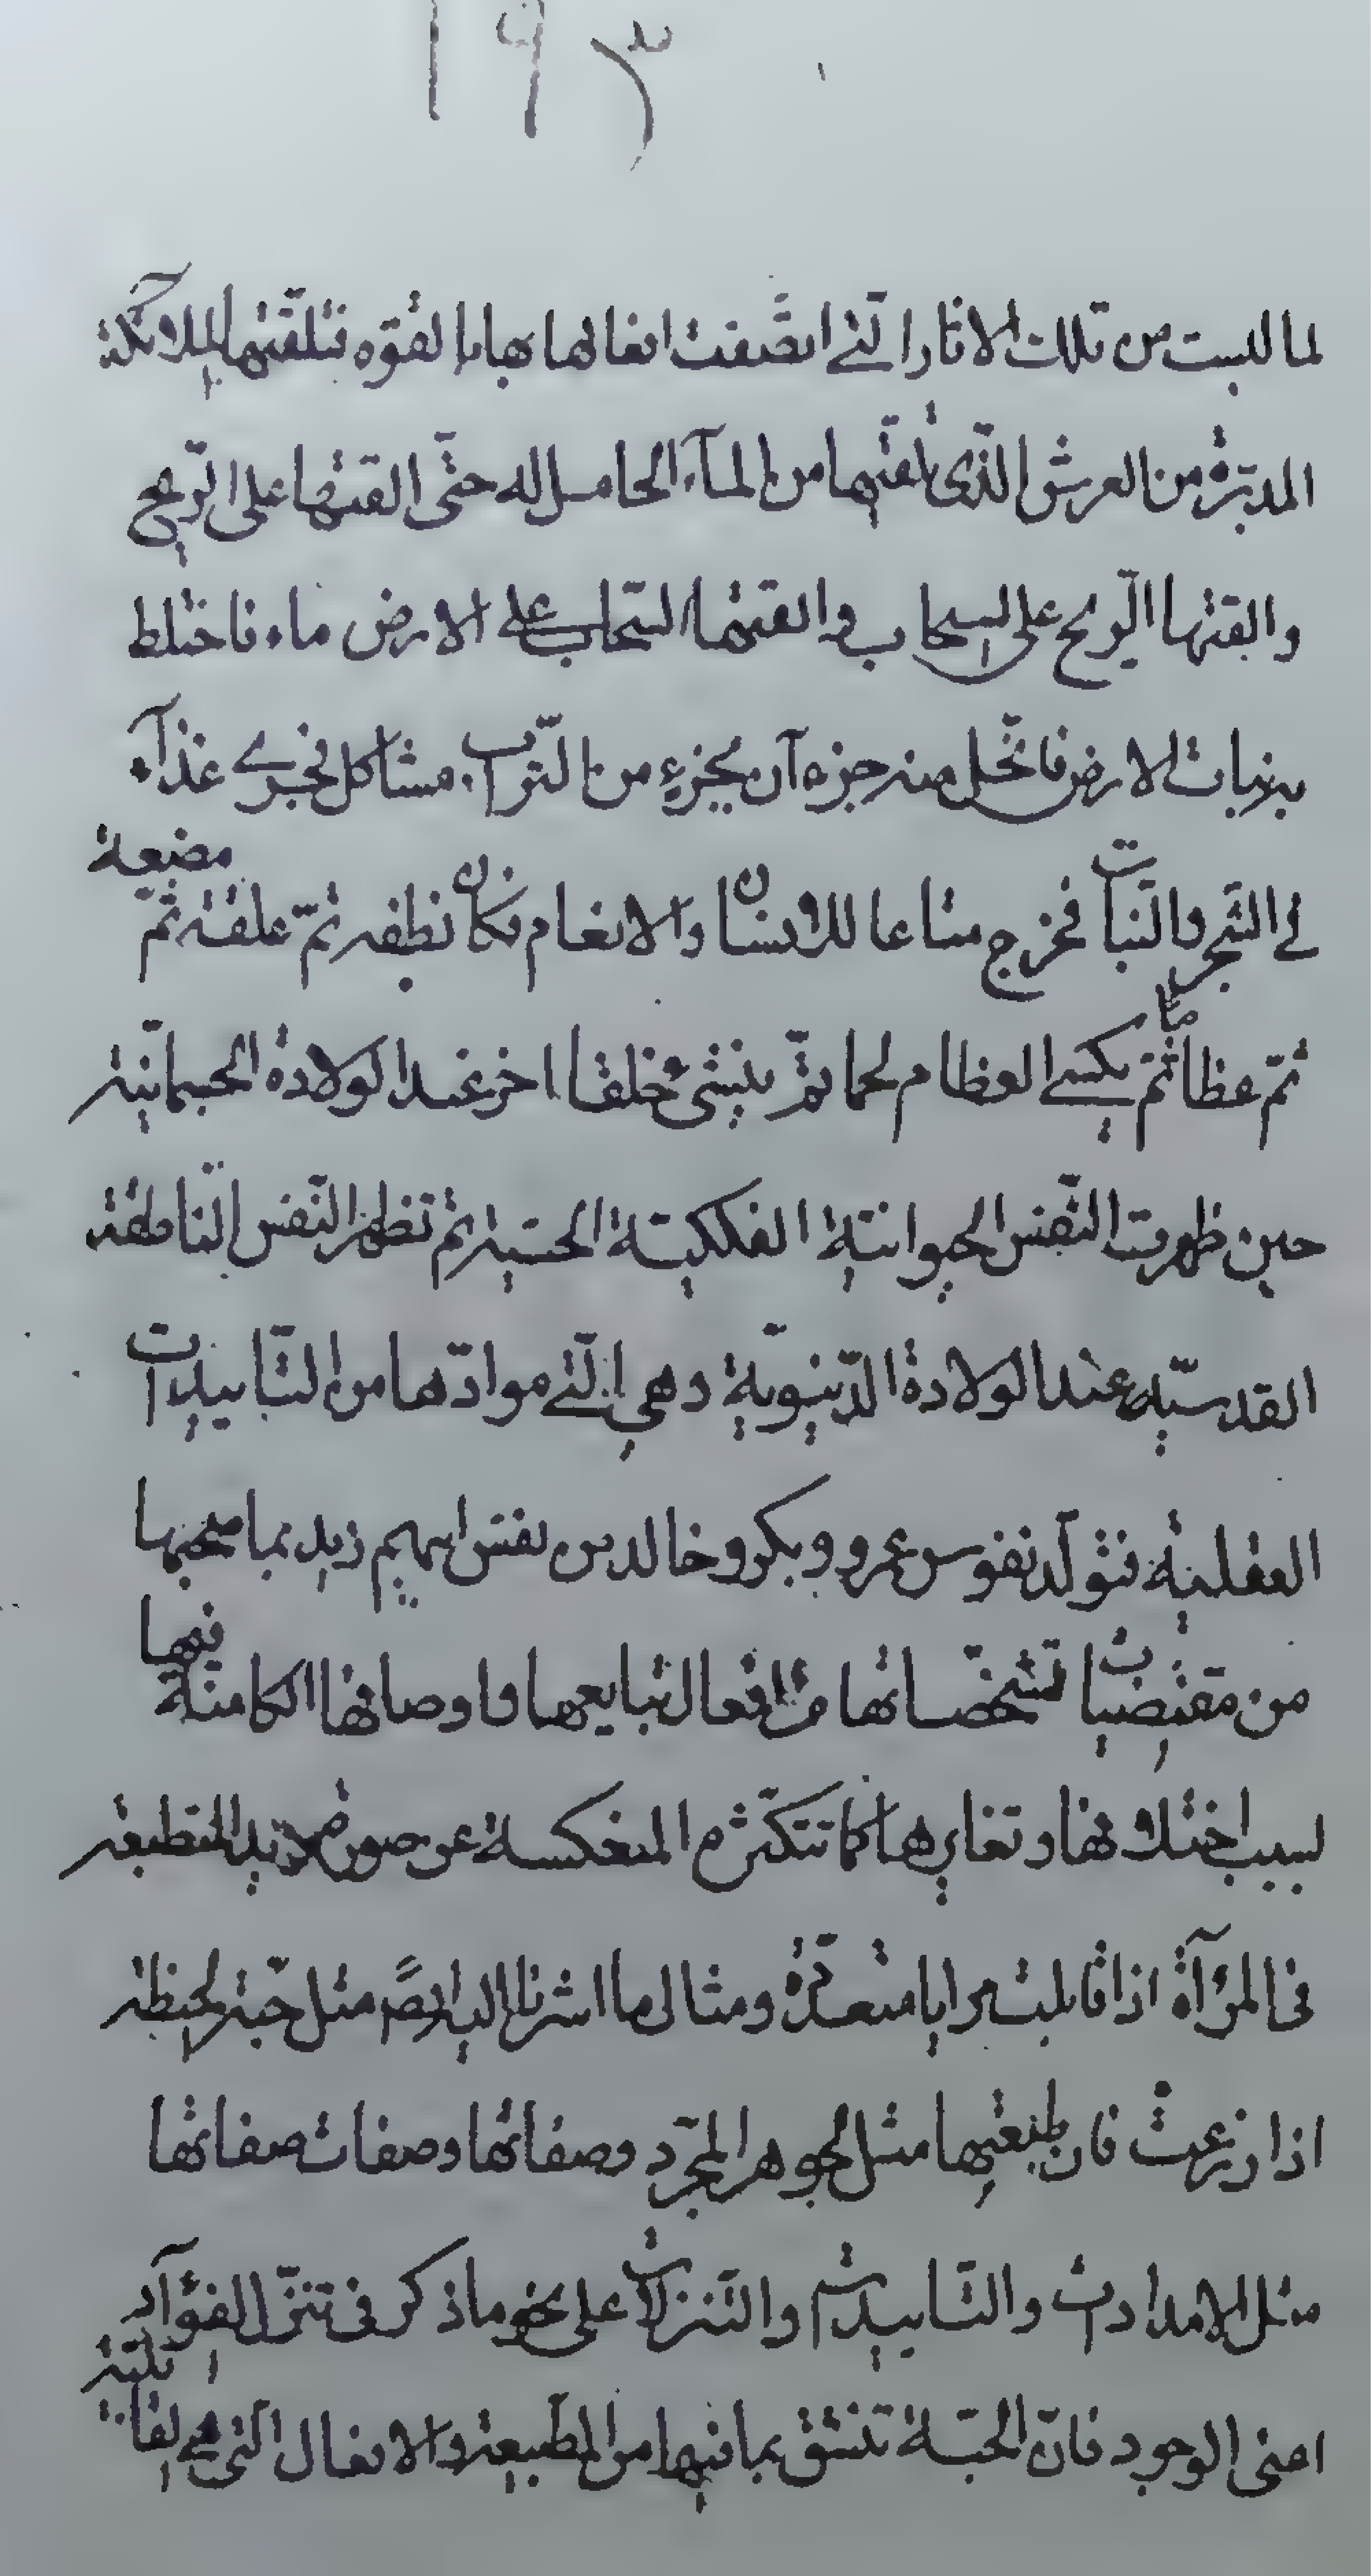 ١٩٣
لما لبست من تلك الاثار التي اتصفت افعالها بها بالقوه فتلقتها الملائكة
المدبرة من العرش الذي تلقيها من المآء الحامل له حتى القتها على الريح
والقتها الريح على السحاب والقتها السحاب على الارض ماء فاختلط
به نبات الارض فانحل منه جزء آن بجزء من التراب مشاكل فجرى غذآء
في الشجر والنبات فخرج متاعا للانسان والانعام فكان نطفه ثم علقة ثم مضغة
ثم عظاما ثم يكسى العظام لحما ثم ينشئ خلقا اخر عند الولادة الجسمانية
حين ظهرت النفس الحيوانية الفلكية الحسية ثم تظهر النفس الناطقة
القدسية عند الولادة الدنيوية وهي التي موادّها من التاييدات
العقلية فتولد نفوس عمرو وبكر وخالد من نفس ابيهم زيد بما صحبها
من مقتضيات تشخصاتها من افعال طبايعها واوصافها الكامنة فيها
بسبب اختلافها وتغايرها كما تتكثر المنعكسة عن صورة زيد المنطبعة
في المرآة اذا قابلت مرايا متعدّدة ومثال ما اشرنا اليه ايضًا مثل حبة الحنطة
اذا زرعت فان طبيعتها مثل الجوهر المجرّد وصفاتها وصفات صفاتها
مثل الامدادات والتاييدات والتنزلات على نحو ما ذكر في تنزل الفؤآد
اعنى الوجود فانّ الحبّة تنشق بما فيها من الطبيعة والافعال التي هي لفا بلية